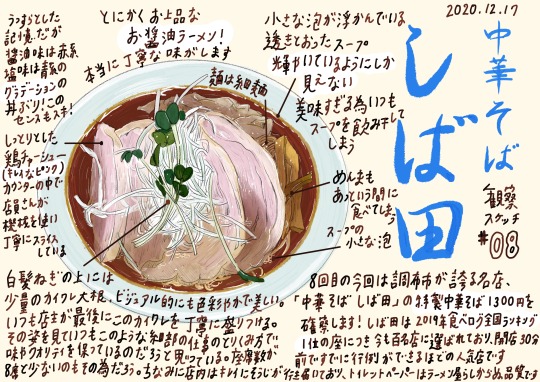 2020.12.17
中華そば
しば田
観察
スケッチ
#08
うすらとした
記憶だが
醤油味は赤系
塩味は青系の
グラデーションの
丼ぶり!この
センスもステキ!
とにかくお上品な
お醤油ラーメン!
本当に丁寧な味がします
小さな泡が浮かんでいる
透きとおったスープ
輝かいているようにしか
見えない
麺は細麺
美味すぎる為いつも
スープを飲み干して
しまう
しっとりとした
鶏チャーシュー
(キレイなピンク)
カウンターの中で
店員さんが
機械を使い
丁寧にスライス
している
めんまも
あっという間に
食べてしまう
スープの
小さな泡
白髪ねぎの上には
少量のカイワレ大根、ビジュアル的にも色彩やかで美しい。
いつも店主が最後にこのカイワレを丁寧に盛りつける。
その姿を見ていつもこのような細部の仕事のとりくみ方で
味やクオリティを保っているのだろうと思っている。座席数が
8席と少ないのもその為だろう。ちなみに店内はキレイにそうじが
8回目の今回は調布市が誇る名店、
「中華そば しば田」の特製中華そば1300円を
確察します!しば田は2019年食べログ全国ランキング
1位の座につき今も百名店に選ばれており、開店30分
前ですでに行列ができるほどの人気店です
行き届いており、トイレットペーパーはラーメン屋らしからぬ品質です